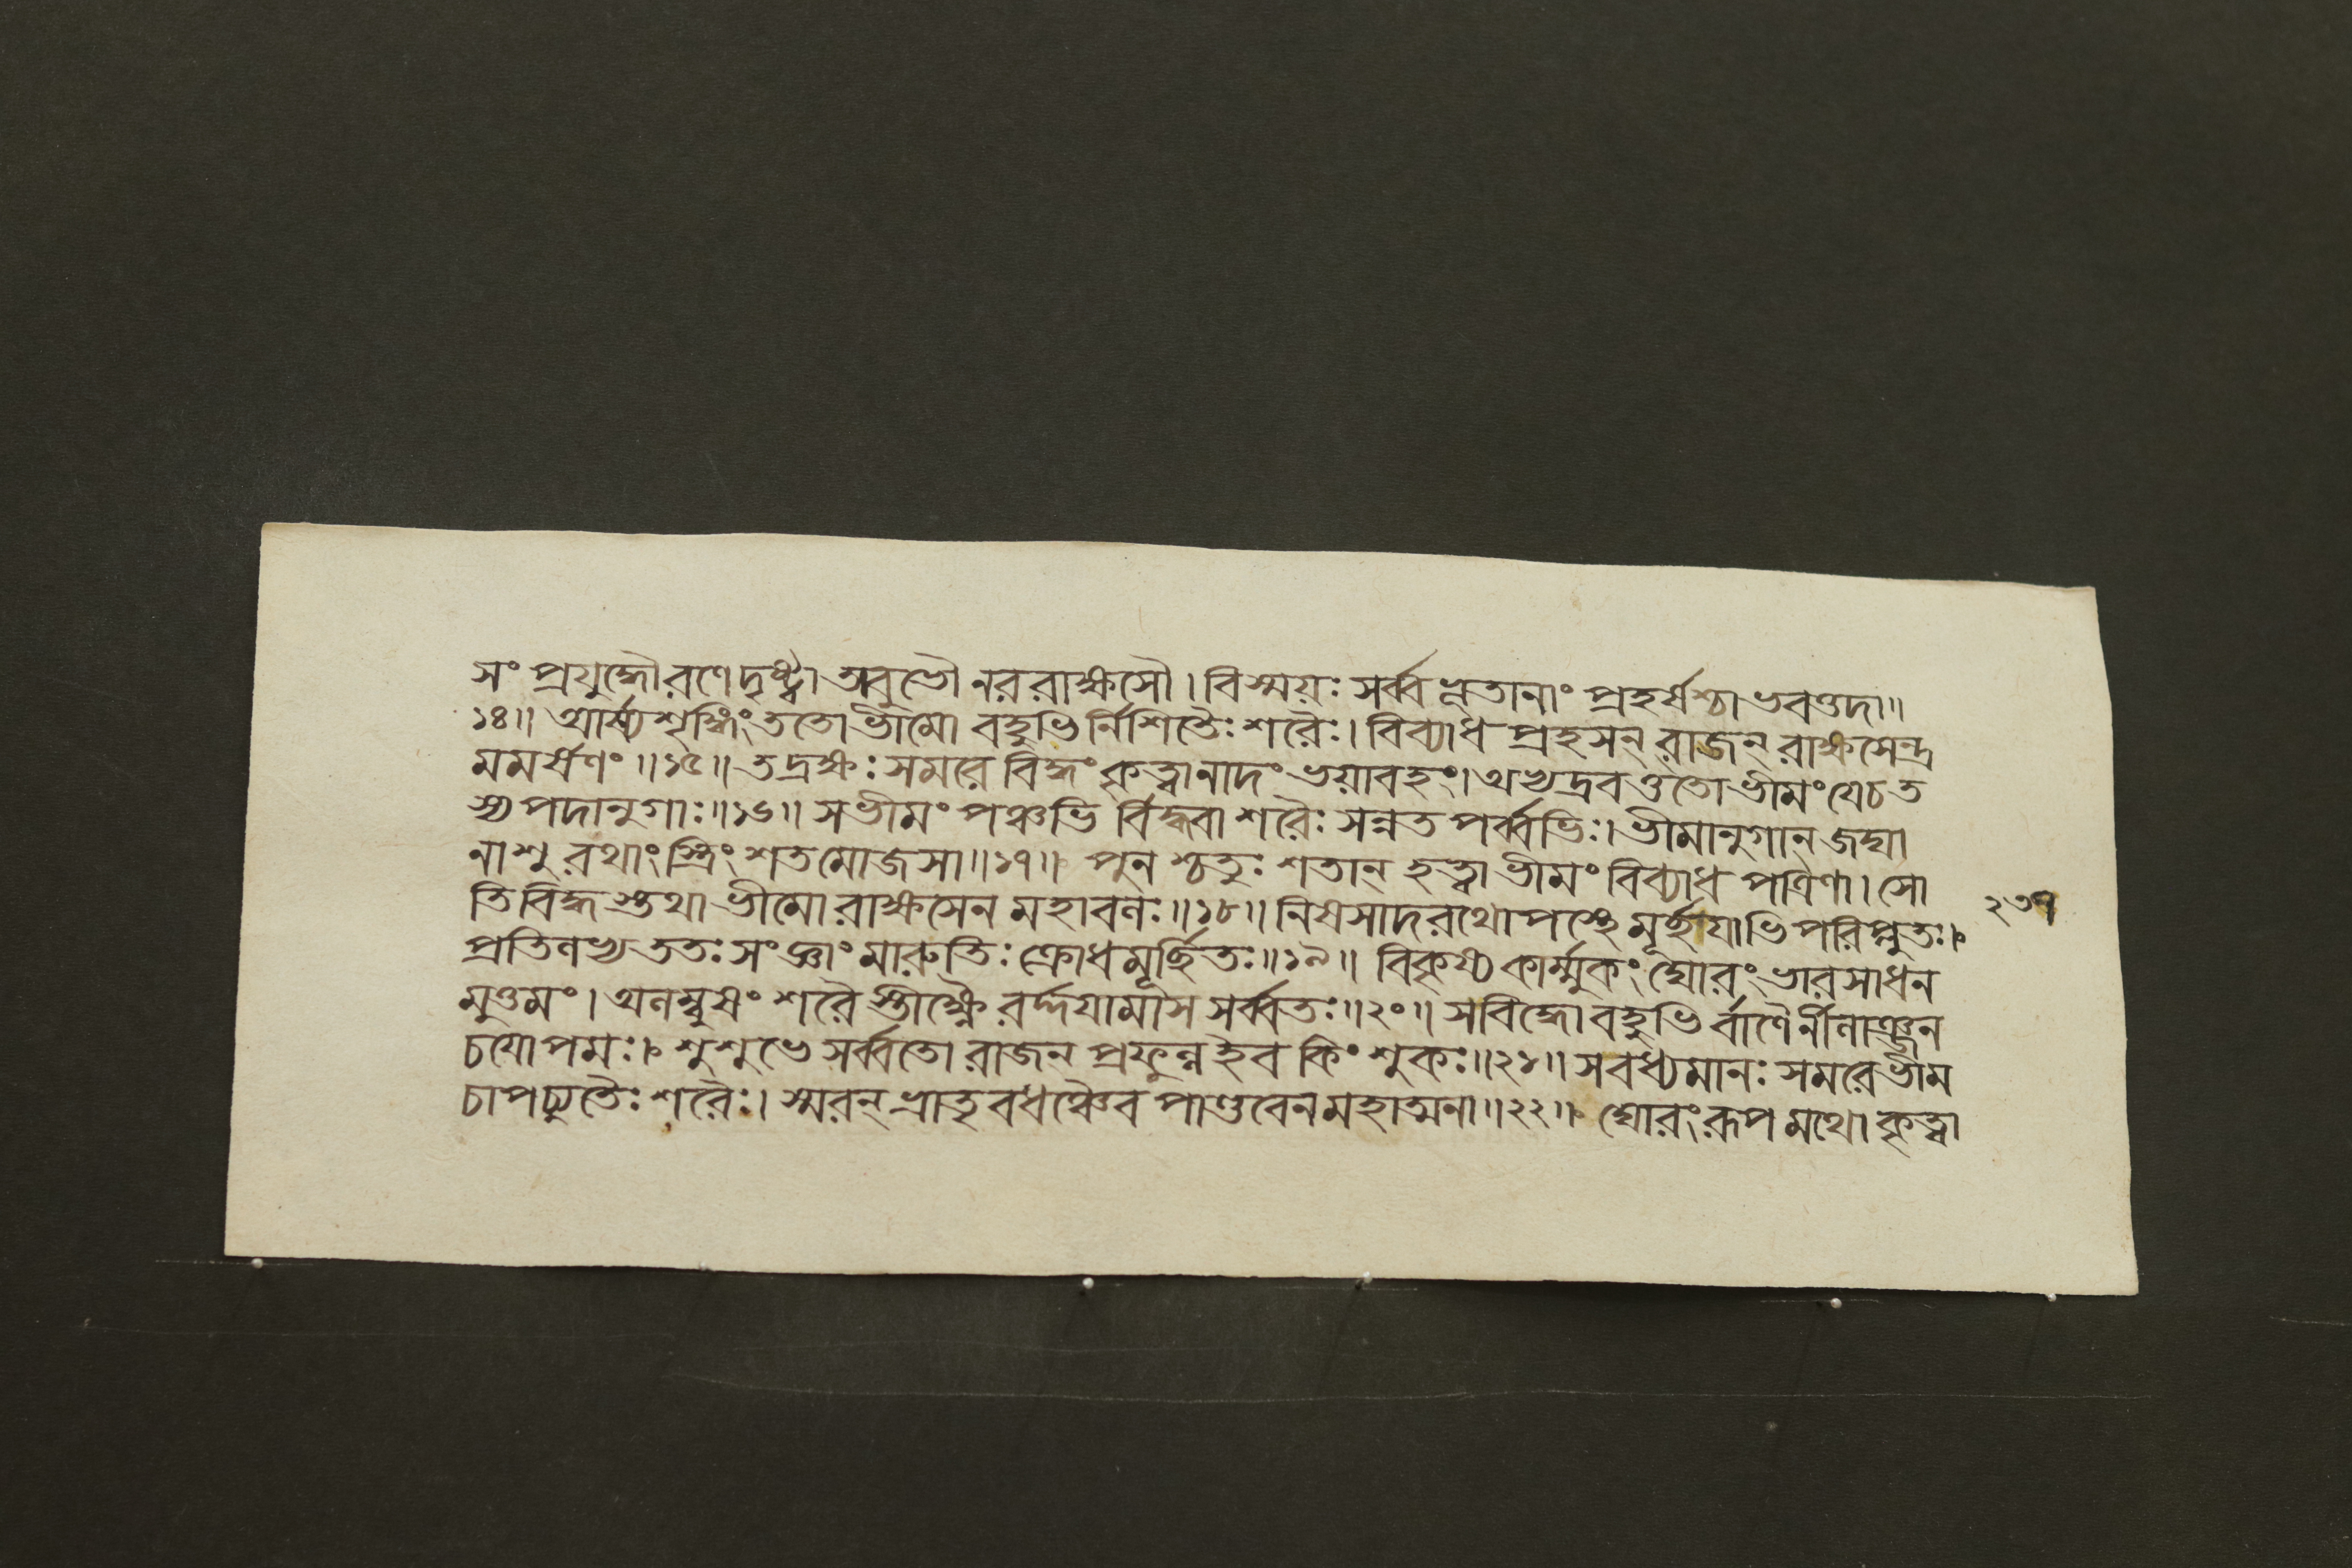 সং প্রযুদ্ধৌ রণে দৃষ্ট্বা অবুভৌ নররাক্ষসৌ। বিস্ময়ঃ সর্ব্বভূতানাং প্রহর্ষশ্চাভবত্তদা॥
১৪॥ আর্ষ্যশৃঙ্গিং ততো ভীমো বহুভির্নিশিতৈঃ শরৈঃ। বিব্যাধ প্রহসন্ রাজন্ রাক্ষসেন্দ্র
মমর্ষণং॥১৫॥ তদ্রক্ষঃ সমরে বিদ্ধং কৃত্বা নাদং ভয়াবহং। অভ্যদ্রবত্ততো ভীমং যে চ ত
স্য পদানুগাঃ॥১৬॥ স ভীমং পঞ্চভি র্বিদ্ধ্বা শরৈঃ সন্নতপর্ব্বভিঃ। ভীমানুগান্ জঘা
নাশু রথাংস্ত্রিংশতমোজসা॥১৭॥ পুনশ্চতুঃশতান্ হত্বা ভীমং বিব্যাধ পত্রিণা। সো
তিবিদ্ধস্তথা ভীমো রাক্ষসেন মহাবলঃ॥১৮॥ নিষসাদ রথোপস্থে মূর্ছয়াভিপরিপ্লুতঃ।
২৩৭
প্রতিলভ্য ততঃ সংজ্ঞাং মারুতিঃ ক্রোধমূর্ছিতঃ॥১৯॥ বিকৃষ্য কার্ম্মুকং ঘোরং ভারসাধন
মুত্তমং। অলম্বুষং শরৈস্তীক্ষ্ণৈ রর্দ্দয়ামাস সর্ব্বতঃ॥২০॥ স বিদ্ধো বহুভি র্বাণৈর্নীলাঞ্জন
চয়োপমঃ। শুশুভে সর্ব্বতো রাজন্ প্রফুল্ল ইব কিংশুকঃ॥২১॥ স বধ্যমানঃ সমরে ভীম
চাপচ্যুতৈঃ শরৈঃ। স্মরন্ ভ্রাতৃবধঞ্চৈব পাণ্ডবেন মহাত্মনা॥২২॥ ঘোরং রূপমথো কৃত্বা